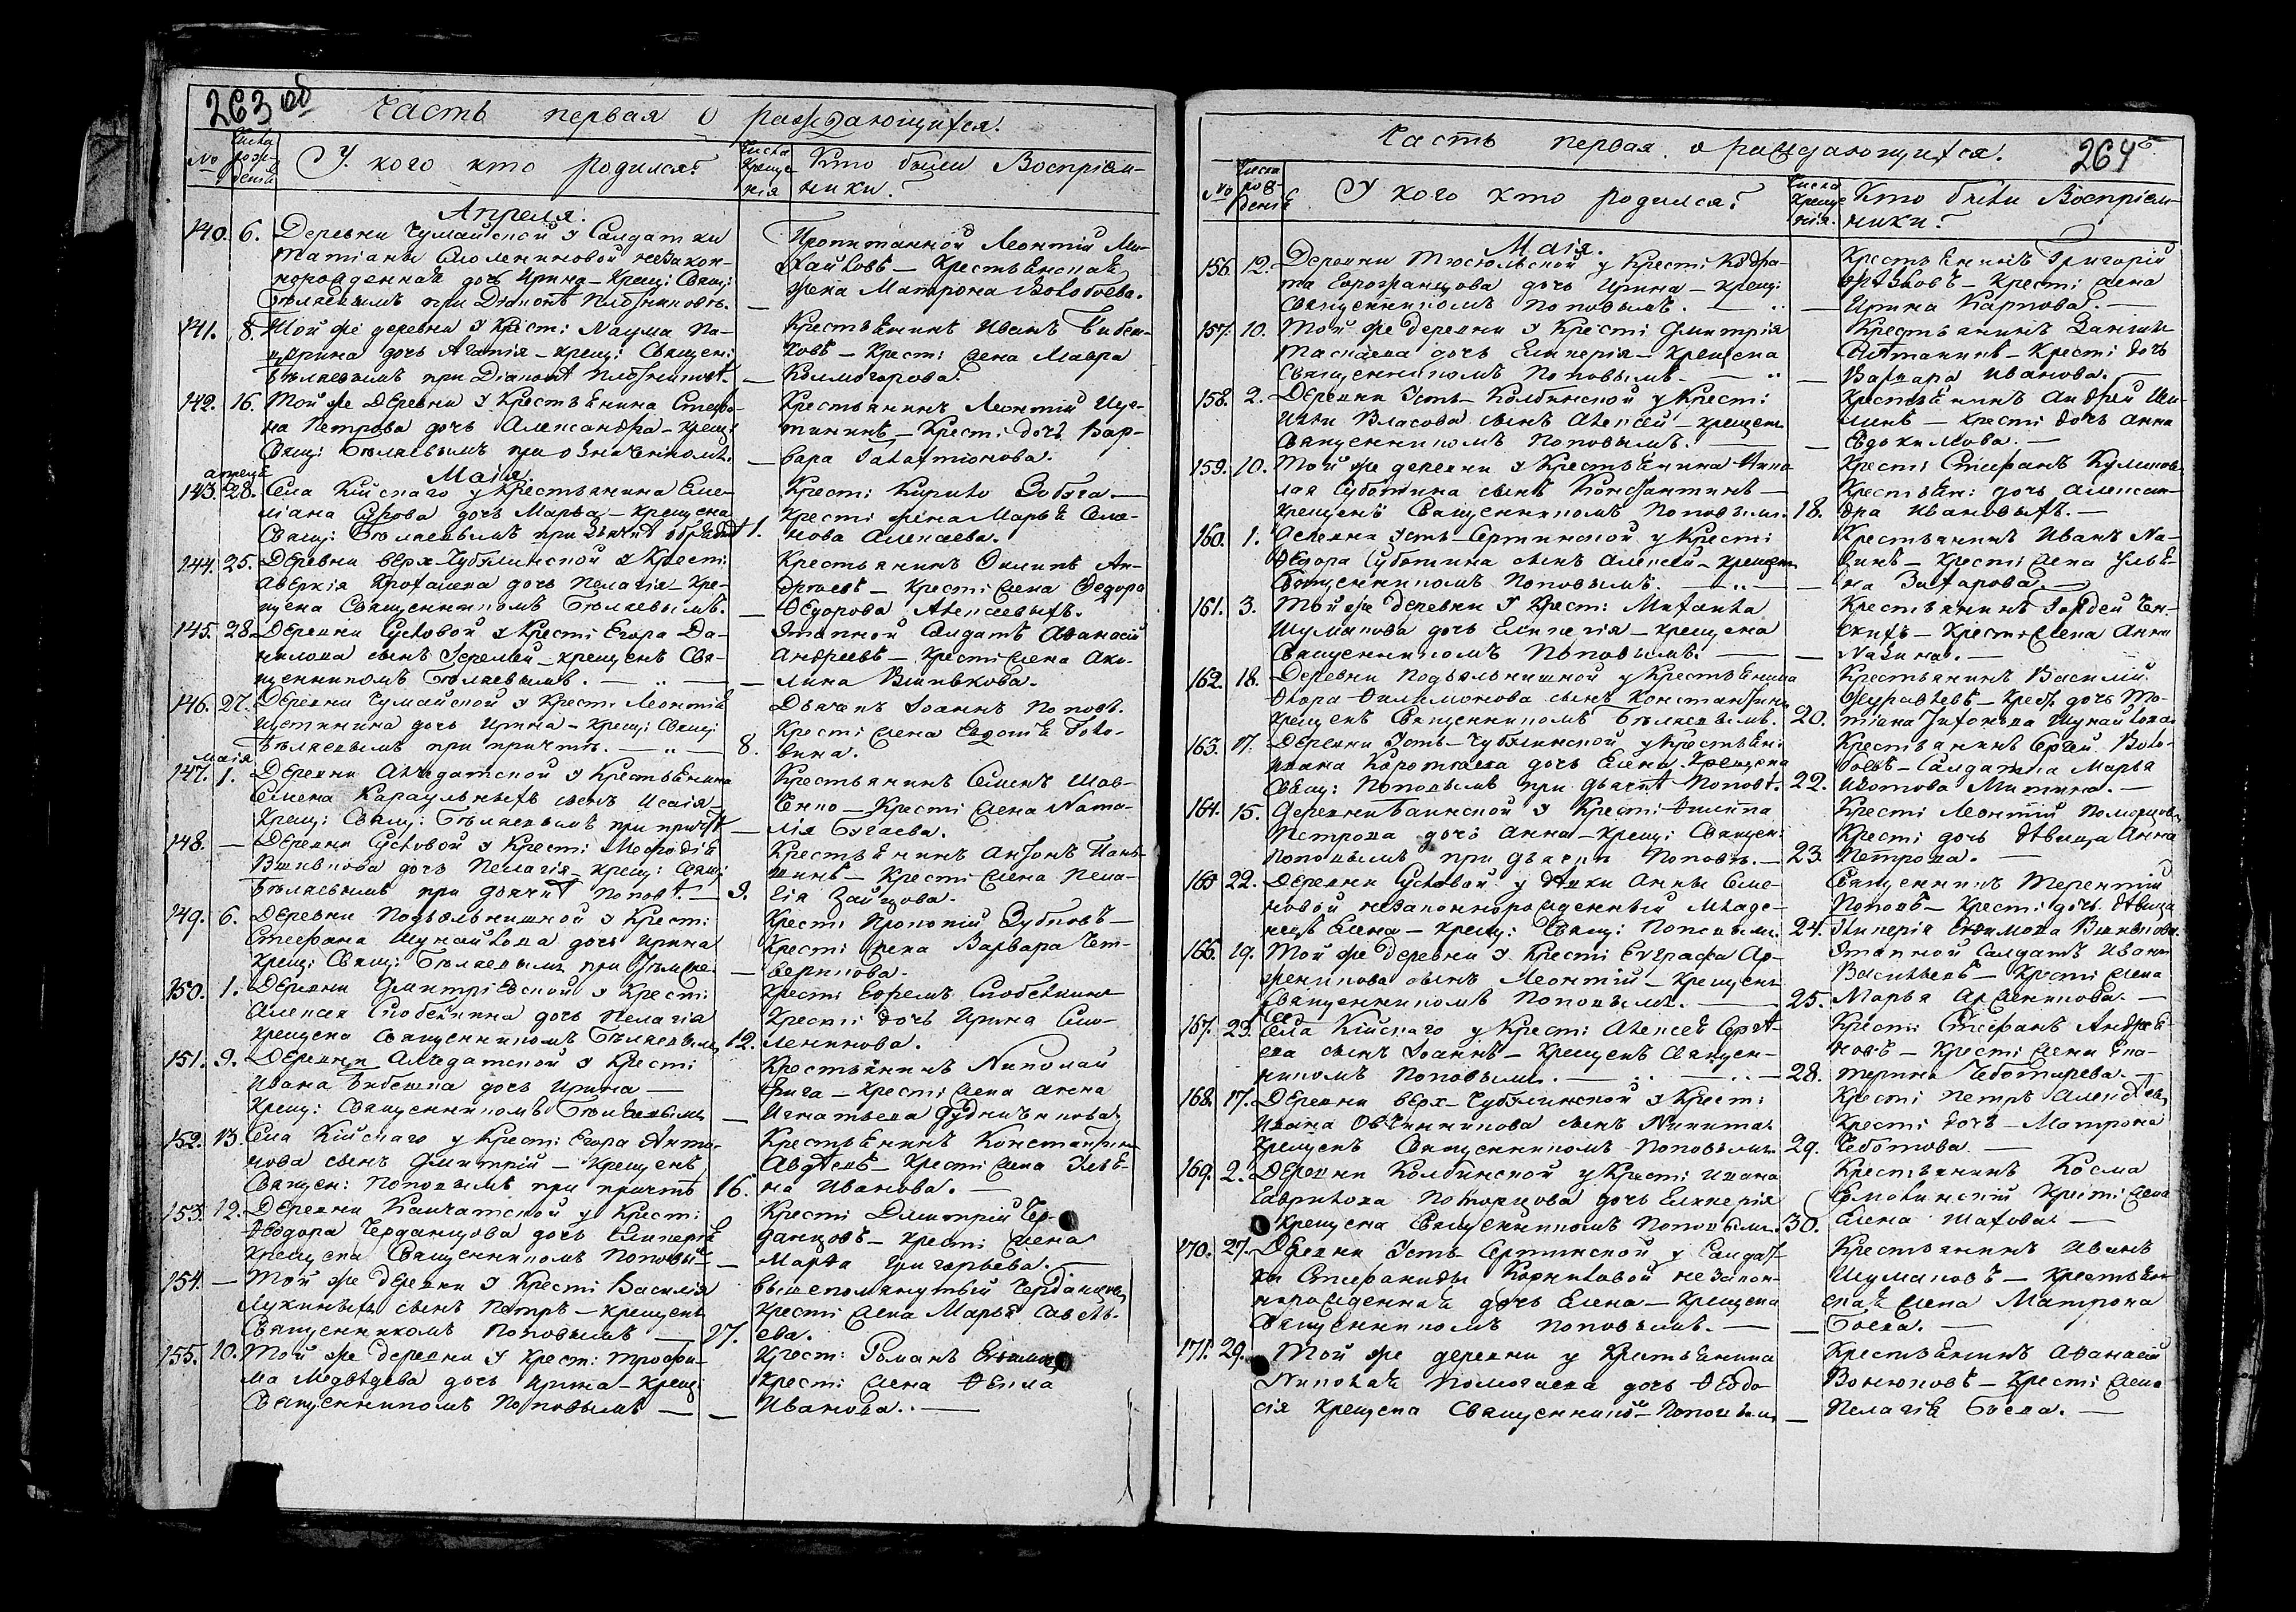 263 об
Часть первая о раждающихся.
№
Числа рожденій
У кого кто родился?
Числа Крещенія
Кто были Воспріем-
ники?
Апреля.
140. 6. Деревни Чумайской у Салдатки
Татіаны незакон-
норожденная дочь Ирина – Крещ: Свящ:
Бѣляевымъ при Діаконѣ
Леонтій Ми-
хайловъ – Крестьянская
жена Матрона
141. 8. Той же деревни у Крест: Наума Па-
дочь Агапія – крещ: Священ:
Бѣляевымъ при Діаконѣ
Крестьянинъ Иванъ Бибеш-
ковъ – Крест: жена Мавра
Колмогорова.
142. 16. Той же Деревни у Крестьянина Стефа-
на Петрова дочь Александра – крещ:
Свящ: Бѣляевымъ при
Крестьянинъ Леонтій Ще-
тининъ – Крест: дочь Вар-
вара
Маія.
апреля
143. 28. Села Кійскаго у Крестьянина Еме-
ліана дочь Марѳа – крещена
Свящ: Бѣляевымъ при 1.
Крест: Кирило Зобова. —
Крест: жена Марья Семе-
нова Алексеева.
144. 25. Деревни Верх-Чубулинской у Крест:
Аверкія дочь Пелагія – кре-
щена Священникомъ Бѣляевымъ. —
Крестьянинъ Филипъ Ан-
– Крест: жена Федора
Ѳедорова Алексеевыхъ.
145. 28. Деревни Сусловой у Крест: Егора Да-
нилова сынъ Іеремѣй – крещенъ Свя-
щенникомъ Бѣляевымъ. — „ —
Этапной Салдатъ Аѳанасій
Андреевъ – Крест: жена Аку-
лина Вшивкова.
146. 27. Деревни Чумайской у Крест: Леонтія
Щетинина дочь Ирина – крещ: Свящ:
Бѣляевымъ при причтѣ. — „ — 8.
Дьячекъ Іоаннъ Поповъ.
Крест: жена Евдокѣя Голо-
вина.
Маія
147. 1. Деревни Алчедатской у Крестьянина
Семена Караульныхъ сынъ Исаія –
Крещ: Свящ: Бѣляевымъ при причтѣ —
Крестьянинъ Семенъ Шев-
ченко – Крест: жена Ната-
лія Бугаева.
148. — Деревни Сусловой у Крест: Меѳодія
Вшивкова дочь Пелагія – крещ: Свящ:
Бѣляевымъ при дьячкѣ Поповѣ. — 9.
Крестьянинъ Антонъ Пань-
шинъ – Крест: жена Пела-
гія Зайцова.
149. 6. Деревни Подъельнишной у Крест:
Стефана Шунайлова дочь Ирина
Крещ: Свящ: Бѣляевымъ при —
Крест: Прокопій Зубковъ —
Крест: жена Варвара Чет-
верикова.
150. 1. Деревни Дмитріевской у Крест:
Алексея дочь Пелагія
Крещена Священникомъ Бѣляевымъ 12.
Крест: Ефремъ
Крест: дочь Ирина Смо-
леникова.
151. 9. Деревни Алчедатской у Крест:
Ивана Бибешка дочь Ирина —
Крещ: Священникомъ Бѣляевымъ —
Крестьянинъ Николай
– Крест: жена Агена
Игнатьева
152. 13. Села Кійскаго у Крест: Егора Анти-
нова сынъ Дмитрій – Крещенъ
Священ: Поповымъ при причтѣ 16.
Крестьянинъ Константинъ
Авдѣевъ – Крест: жена Улья-
на Иванова. —
153. 12. Деревни Камчатской у Крест:
Ѳеодора Черданцова дочь Гликерія
Крещена Священникомъ Поповы- —
Крест: Дмитрій Чер-
данцовъ – Крест: жена
Марѳа Григорьева. —
154. — Той же деревни у Крест: Василія
Лукиныхъ сынъ Петръ – Крещенъ
Священникомъ Поповымъ — 27.
Вышепомянутый Черданцевъ
Крест: жена Марья Савель-
ева.
155. 10. Той же деревни у Крест: Трофи-
ма Медвѣдева дочь Ирина – Крещ:
Священникомъ Поповымъ — —
Крест: Романъ
Крест: жена Ѳекла
Иванова. —
Часть первая о раждающихся.
264
№
Числа рожденій
У кого кто родился?
Числа Крещенія.
Кто были Воспріем-
ники?
Маія.
156. 12. Деревни Тюсюльской у Крест: Кодра-
та Ерофанцова дочь Ирина – Крещ:
Священникомъ Поповымъ. — „ —
Крестьянинъ Григорій
– Крест: жена
Ирина Карпова. —
157. 10. Той же Деревни у Крест: Дмитрія
Таскаева дочь Гликерія – Крещена
Священникомъ Поповымъ. — „ —
Крестьянинъ
– Крест: дочь
Варвара Иванова. —
158. 2. Деревни Усть-Колбинской у Крест:
Власова сынъ Алексей – крещенъ
Священникомъ Поповымъ. — —
Крестьянинъ Андрей Ши-
– Крест: дочь Анна
Евдокимова. —
159. 10. Той же деревни у Крестьянина Нико-
лая Суботина сынъ Константинъ —
Крещенъ Священникомъ Поповымъ. 18.
Крест: Стефанъ Куликовъ
Крестьян: дочь Алексан-
дра Ивановыхъ. —
160. 1. Деревни Усть-Сертинской у Крест:
Ѳедора Суботина сынъ Алексей – Крещенъ
Священникомъ Поповымъ. — „ —
Крестьянинъ Иванъ Па-
– Крест: жена Улья-
на Захарова. —
161. 3. Той же деревни у Крест: Михаила
Шумакова дочь Гликерія – Крещена
Священникомъ Поповымъ. — —
Крестьянинъ Гордей Чер-
– Крест: жена Анна
. —
162. 18. Деревни Подъельнишной у Крестьянина
Филимонова сынъ Константинъ
Крещенъ Священникомъ Бѣляевымъ. 20.
Крестьянинъ Василій
Журавлевъ – Крест: дочь Та-
тіана Шунайлова
163. 17. Деревни Усть-Чубулинской у Крестьян:
Ивана Короткаева дочь Елена Крещена
Свящ: Поповымъ при дьячкѣ Поповѣ. 22.
Крестьянинъ Сергей Воло-
– Салдатка Марья
. —
164. 15. Деревни Баимской у Крест: Филипа
Петрова дочь Анна – Крещ: Священ:
Поповымъ при дьячкѣ Поповѣ. — 23.
Крест: Леонтій Поморцовъ
Крест: дочь дѣвица Анна
Петрова. —
165 22. Деревни Сусловой у дѣвки Анны Семе-
новой незаконнорожденный младе-
нецъ Елена – крещ: Свящ: Поповымъ. 24.
Священникъ Терентій
Поповъ – Крест: дочь дѣвица
Гликерія Вшивкова.
166. 19. Той же деревни у Крест: Евграфа Ар-
женикова сынъ Леонтій – Крещенъ
Священникомъ Поповымъ. — 25.
Этапной Салдатъ Иванъ
Васильевъ – Крест: жена
Марья Арженикова. —
167. 23. Села Кійскаго у Крест: Алексея Сергѣ-
ева сынъ Іоаннъ – Крещенъ Священ-
никомъ Поповымъ. — „ — „ — 28.
Крест: Стефанъ Андрея-
новъ – Крест: жена Ека-
терина Чеботарева. —
168. 17. Деревни Верх-Чубулинской у Крест:
Ивана Овчинникова сынъ Никита
Крещенъ Священникомъ Поповымъ 29.
Крест: Петръ Алексѣевъ
Крест: дочь – Матрона
Чеботова —
169. 2. Деревни Колбинской у Крест: Ивана
Гаврилова Поморцова дочь Гликерія
Крещена Священникомъ Поповымъ. 30.
Крестьянинъ Косма
Ермолинскій Крест: жена
Елена Шахова. —
170. 27. Деревни Усть-Сертинской у Салдат-
ки Стефаниды Корниловой незакон-
норожденная дочь Елена – Крещена
Священникомъ Поповымъ. — —
Крестьянинъ Иванъ
Шумаковъ – Крестьян-
ская жена Матрона
Боева. —
171. 29. Той же деревни у Крестьянина
Николая дочь Ѳеодо-
сія Крещена Священнико- Поповымъ —
Крестьянинъ Аѳанасій
Вонюковъ – Крест: жена
Пелагія Боева. —